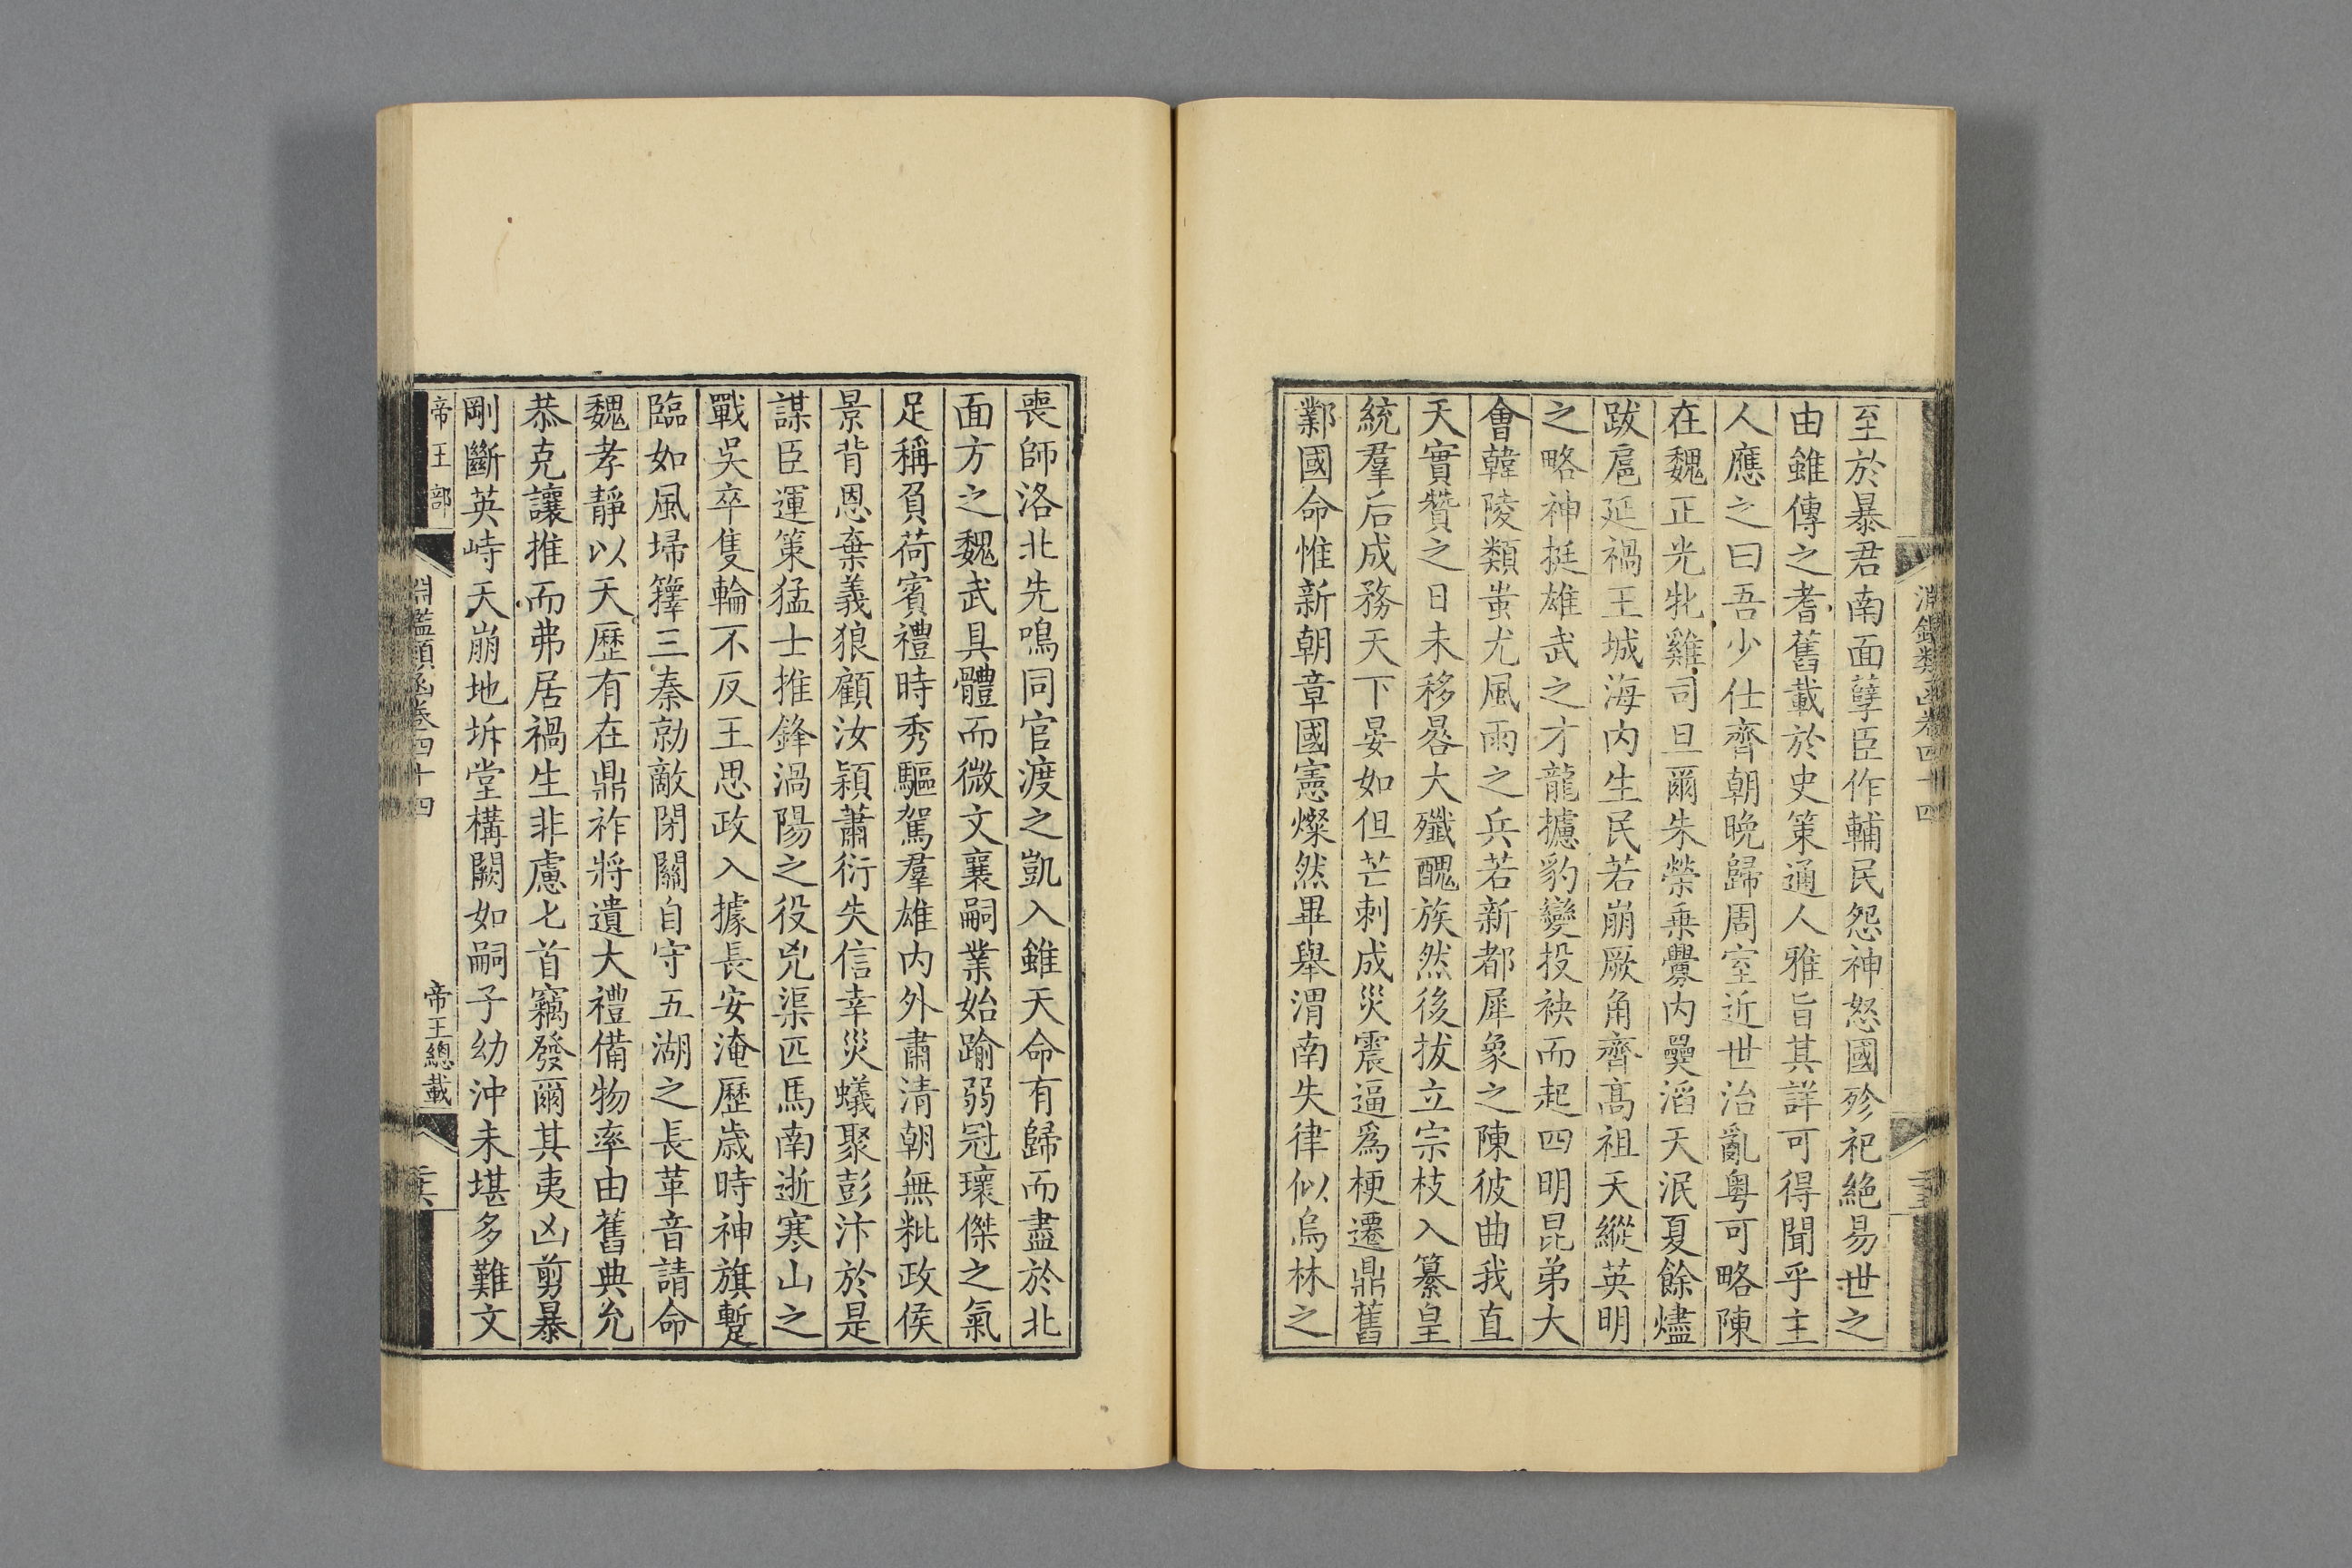 淵鑑類函卷四十四
至於暴君南面孽臣作輔民怨神怒國殄祀絶易世之
由雖傳之耆舊載於史策通人雅旨其詳可得聞乎主
人應之曰吾少仕齊朝晚歸周室近世治亂粤可略陳
在魏正光牝雞司旦爾朱榮乗釁内㢞滔天泯夏餘燼
跋扈延禍王城海内生民若崩厥角齊高祖天縱英明
之略神挺雄武之才龍攄豹變投袂而起四明昆弟大
會韓陵類蚩尤風雨之兵若新都犀象之陳彼曲我直
天實贊之日未移晷大殲醜族然後拔立宗枝入纂皇
統羣后成務天下晏如但芒刺成災震逼爲梗遷鼎舊
鄴國命惟新朝章國憲燦然畢舉渭南失律似烏林之
喪師洛北先鳴同官渡之凱入雖天命有歸而盡於北
面方之魏武具體而微文襄嗣業始踰弱冠瓌傑之氣
足稱負荷賓禮時秀驅駕羣雄内外肅清朝無粃政侯
景背恩棄義狼顧汝潁蕭衍失信幸災蟻聚彭汴於是
謀臣運策猛士推鋒渦陽之役兇渠匹馬南逝寒山之
戰吳卒隻輪不反王思政入據長安淹歷歳時神旗蹔
臨如風埽籜三秦勍敵閉關自守五湖之長革音請命
魏孝靜以天歷有在鼎祚將遺大禮備物率由舊典允
恭克讓推而弗居禍生非慮匕首竊發爾其夷凶剪暴
剛斷英峙天崩地坼堂構闕如嗣子幼沖未堪多難文
帝王部
淵鑑類函卷四十四
帝王總載